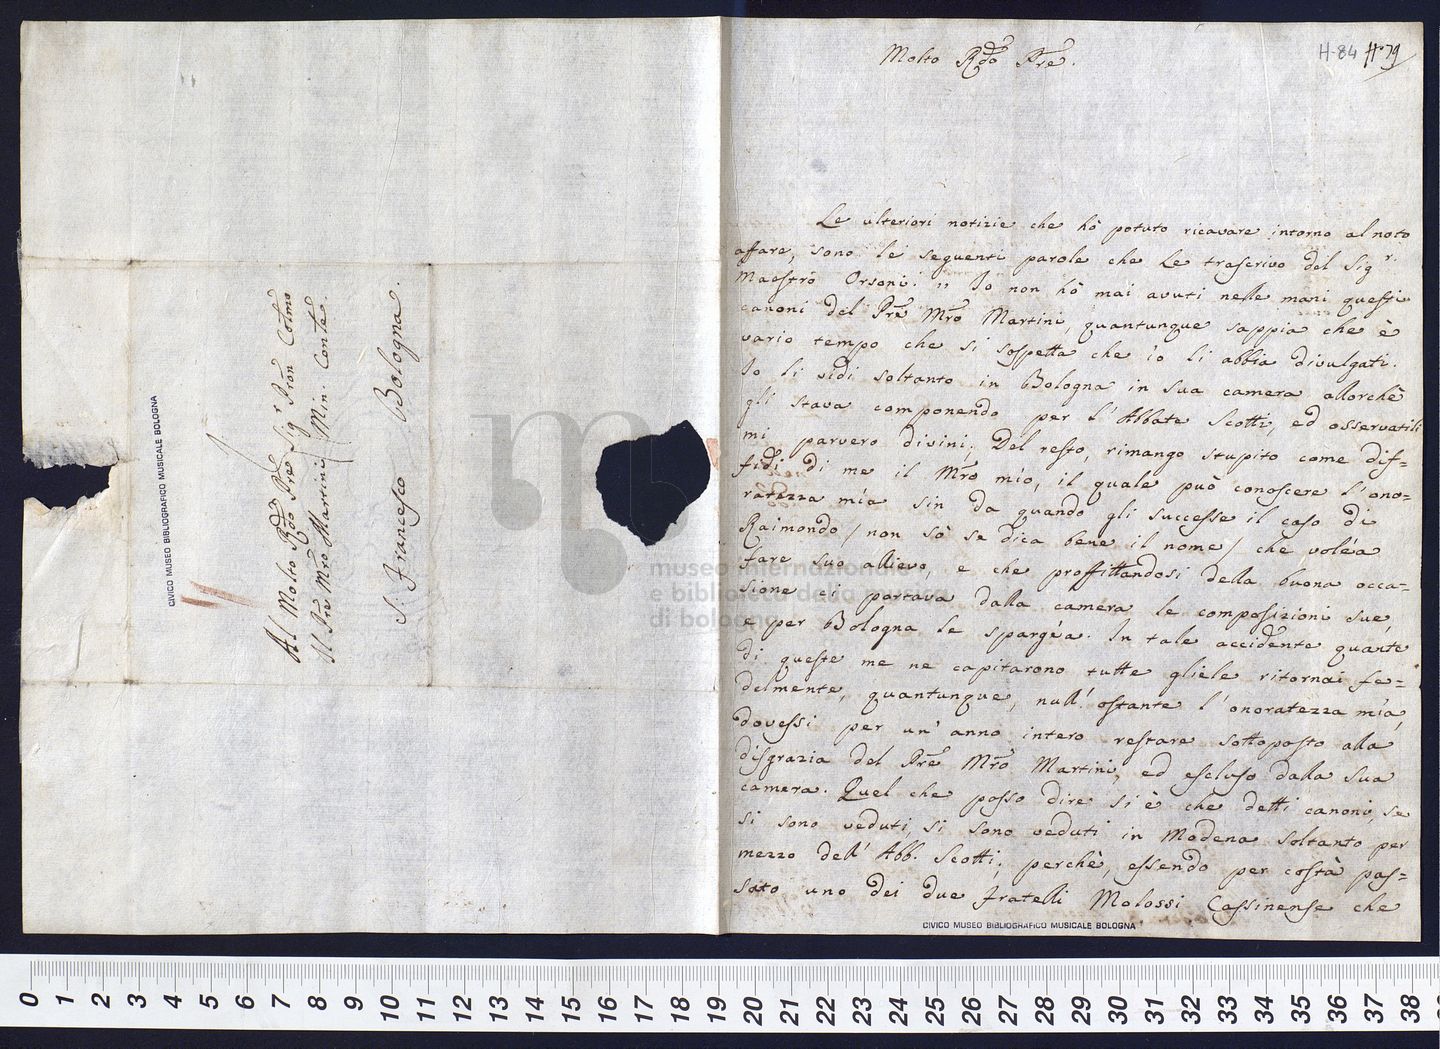 Al Molto Rdo Pre Sigr Pron Colmo
Il Pre Mro Martini Min. Conle
S. Francesco Bologna.
CIVICO MUSEO BIBLIOGRAFICO MUSICALE BOLOGNA
H-84 H.79
Molto Rdo Pre.
Le ulteriori notizie che hò potuto ricavare intorno al noto
affare, sono le seguenti parole che Le trascrivo del Sigr.
Maestro Orsoni: „ Io non hò mai avuti nelle mani questi
canoni del Pre Mro Martini, quantunque sappia che è
vario tempo che si sospetta che io li abbia divulgati.
Io li vidi soltanto in Bologna in sua camera allorchè
gli stava componendo per l'Abbate Scotti, ed osservatili
mi parvero divini; Del resto, rimango stupito come dif=
fidi di me il Mro mio, il quale può conoscere l'ono=
ratezza mia sin da quando gli successe il caso di
Raimondo / non sò se dica bene il nome / che voléa
fare suo allievo, e che proffittandosi della buona occa=
sione ei portava dalla camera le composizioni sue,
e per Bologna le spargéa. In tale accidente quante
di queste me ne capitarono tutte gliele ritornai fe=
delmente, quantunque, null'ostante l'onoratezza mia,
dovessi per un'anno intero restare sottoposto alla
disgrazia del Pre Mro Martini, ed escluso dalla sua
camera. Quel che posso dire si è che detti canoni, se
si sono veduti, si sono veduti in Modena soltanto per
mezzo dell'Abb. Scotti; perchè, essendo per costà pas=
sato uno dei due fratelli Molossi Cassinense che
CIVICO MUSEO BIBLIOGRAFICO MUSICALE BOLOGNA
museo internazionale
e biblioteca della musica
di bologna
0 1 2 3 4 5 6 7 8 9 10 11 12 13 14 15 16 17 18 19 20 21 22 23 24 25 26 27 28 29 30 31 32 33 34 35 36 37 38